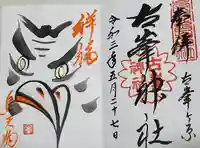 奉拝
古峯ヶ原
古峯神社
令和三年五月二十七日
祥福